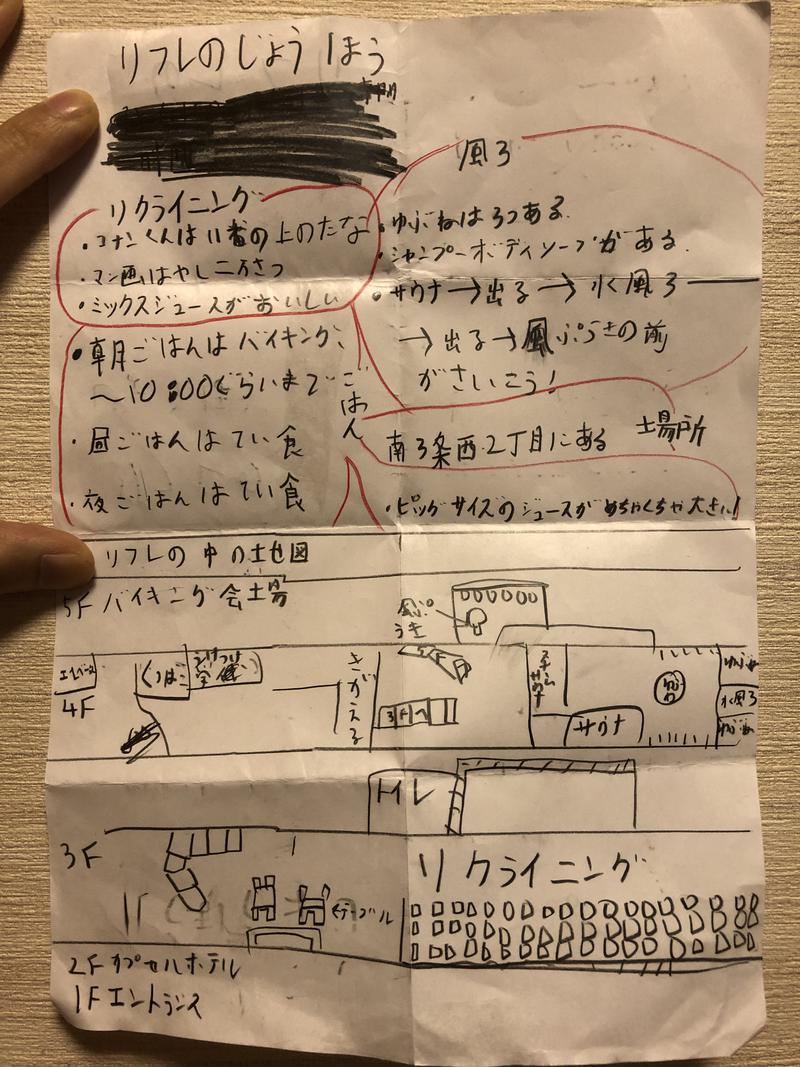 リフレのじょうほう
リクライニング
・コナンくんは11番の上のたな
・マン画はやし二万さつ
・ミックスジュースがおいしい
風ろ
・ゆぶねは3つある.
・シャンプーボディソープがある.
・サウナ→出る→水風ろ
→出る→風ぷろきの前
がさいこう!
ごはん
・朝ごはんはバイキング、
〜10:00ぐらいまで
・昼ごはんはてい食
・夜ごはんはてい食
場所
南3条西2丁目にある
・ビッグサイズのジュースがめちゃくちゃ大きい!
リフレの中の地図
5F バイキング会場
4F
くつばこ
きがえる
3Fへ
サウナ
水風ろ
トイレ
3F
テーブル
リクライニング
2F カプセルホテル
1F エントランス